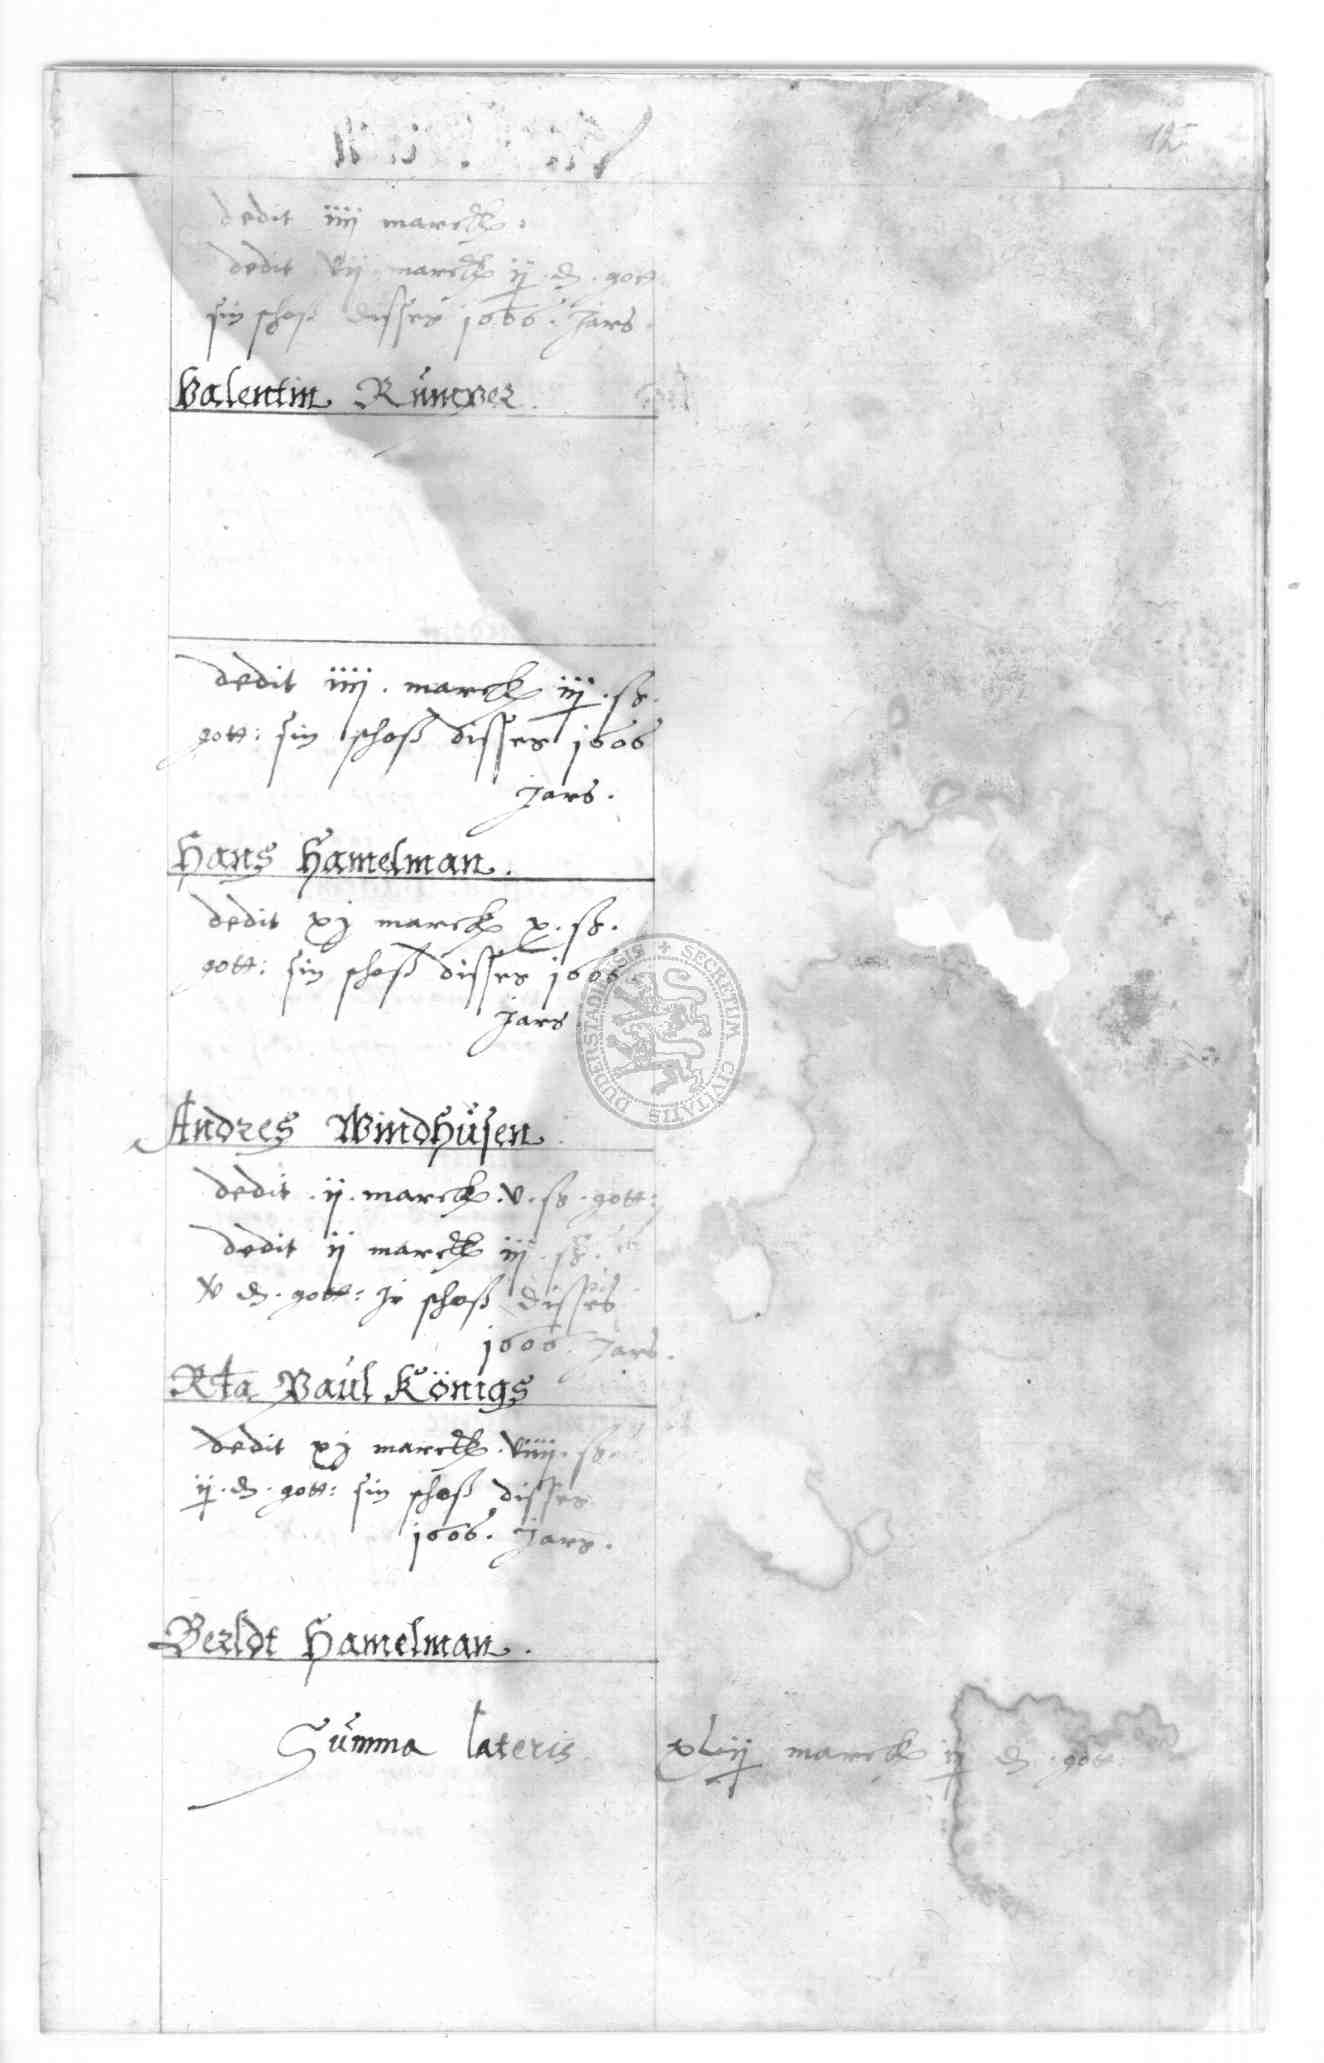 12
dedit iiij marck.
dedit vij marck ij. d. gott
sin schoß disses 1606. Jars.
Valentin Rümper
dedit iiij. marck iij. ss.
gott: sin schoß disses 1606
Jars.
Hans Hamelman.
dedit xj marck x. ss.
gott: sin schoß disses 1606
Jars
SECRETUM CIVITATIS DUDERSTADIENSIS
Andres Windhusen
dedit. ij. marck. v. ss. gott:
dedit ij marck iij. ss.
v d. gott: Jr schoß disses
1606. Jars.
Rta Paul Königs
dedit xj marck. viiij. ss.
ij. d. gott: sin schoß disses
1606. Jars.
Berldt Hamelman.
Summa lateris xLiij marck ij d. gott.